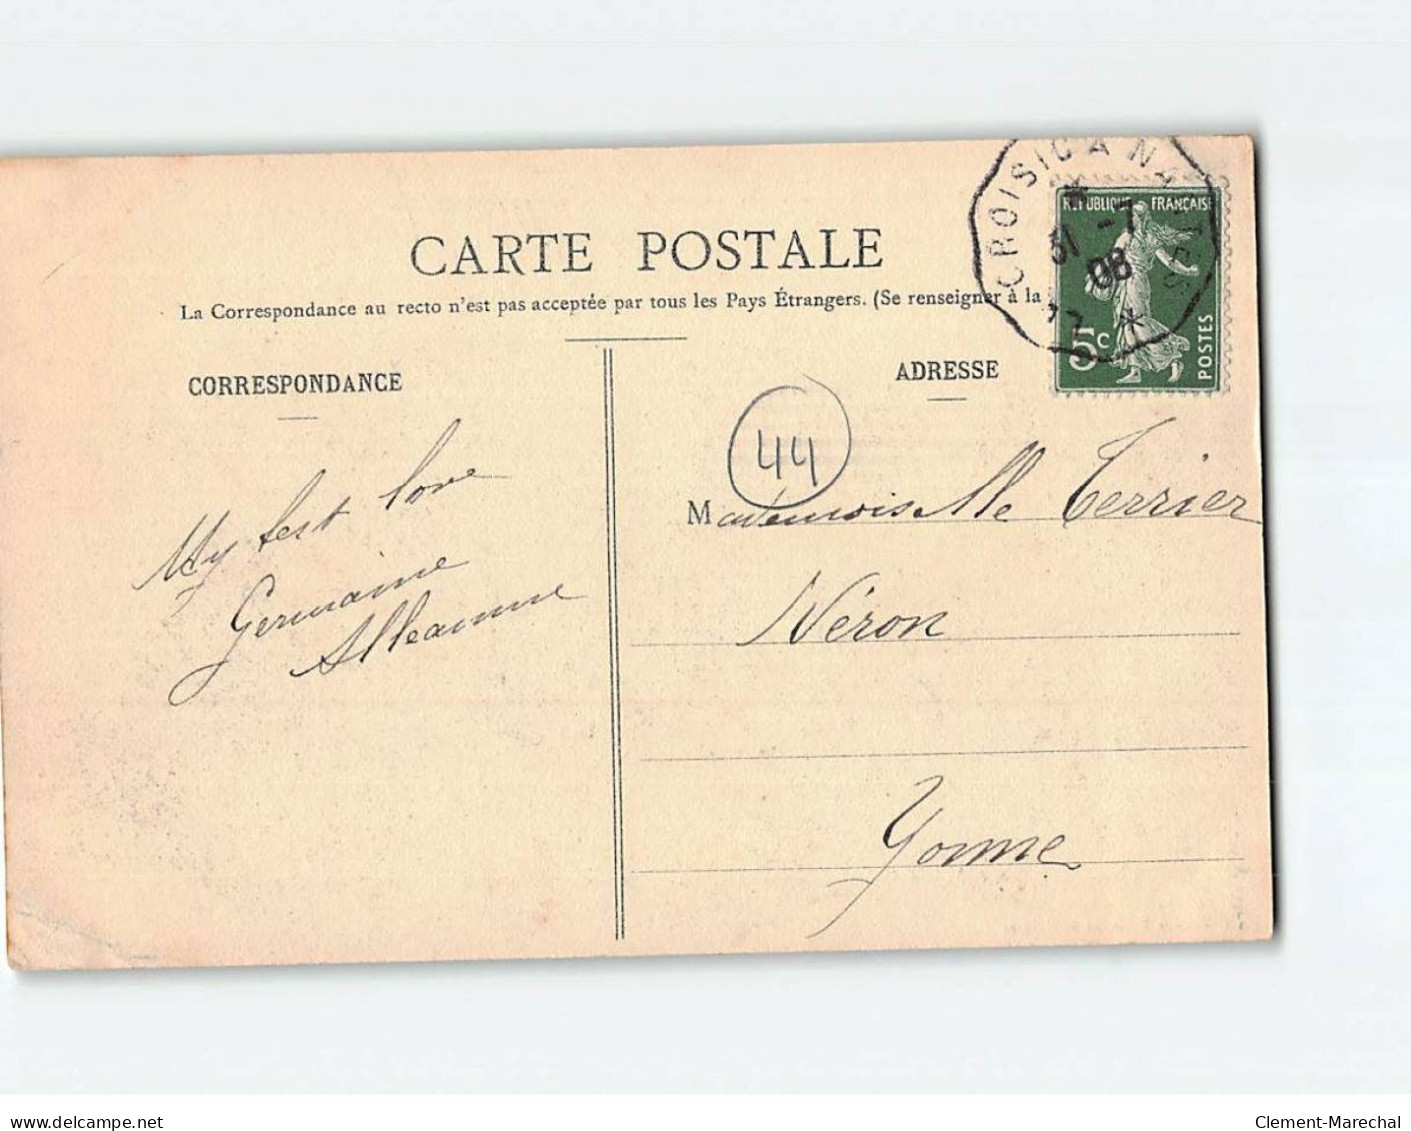 CARTE POSTALE
La Correspondance au recto n'est pas acceptée par tous les Pays Étrangers. (Se renseigner à la
CORRESPONDANCE
ADRESSE
LE CROISIC A NANTES
31 -7
08
REPUBLIQUE FRANÇAISE
5c
POSTES
44
My best love
Germaine
Alleaume
Mademoiselle Terrier
Néron
Yonne
www.delcampe.net
Clement-Marechal